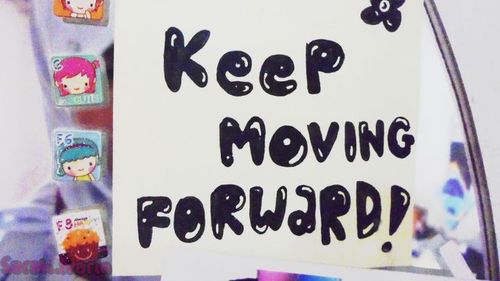 KEEP
MOVING
FORWARD!